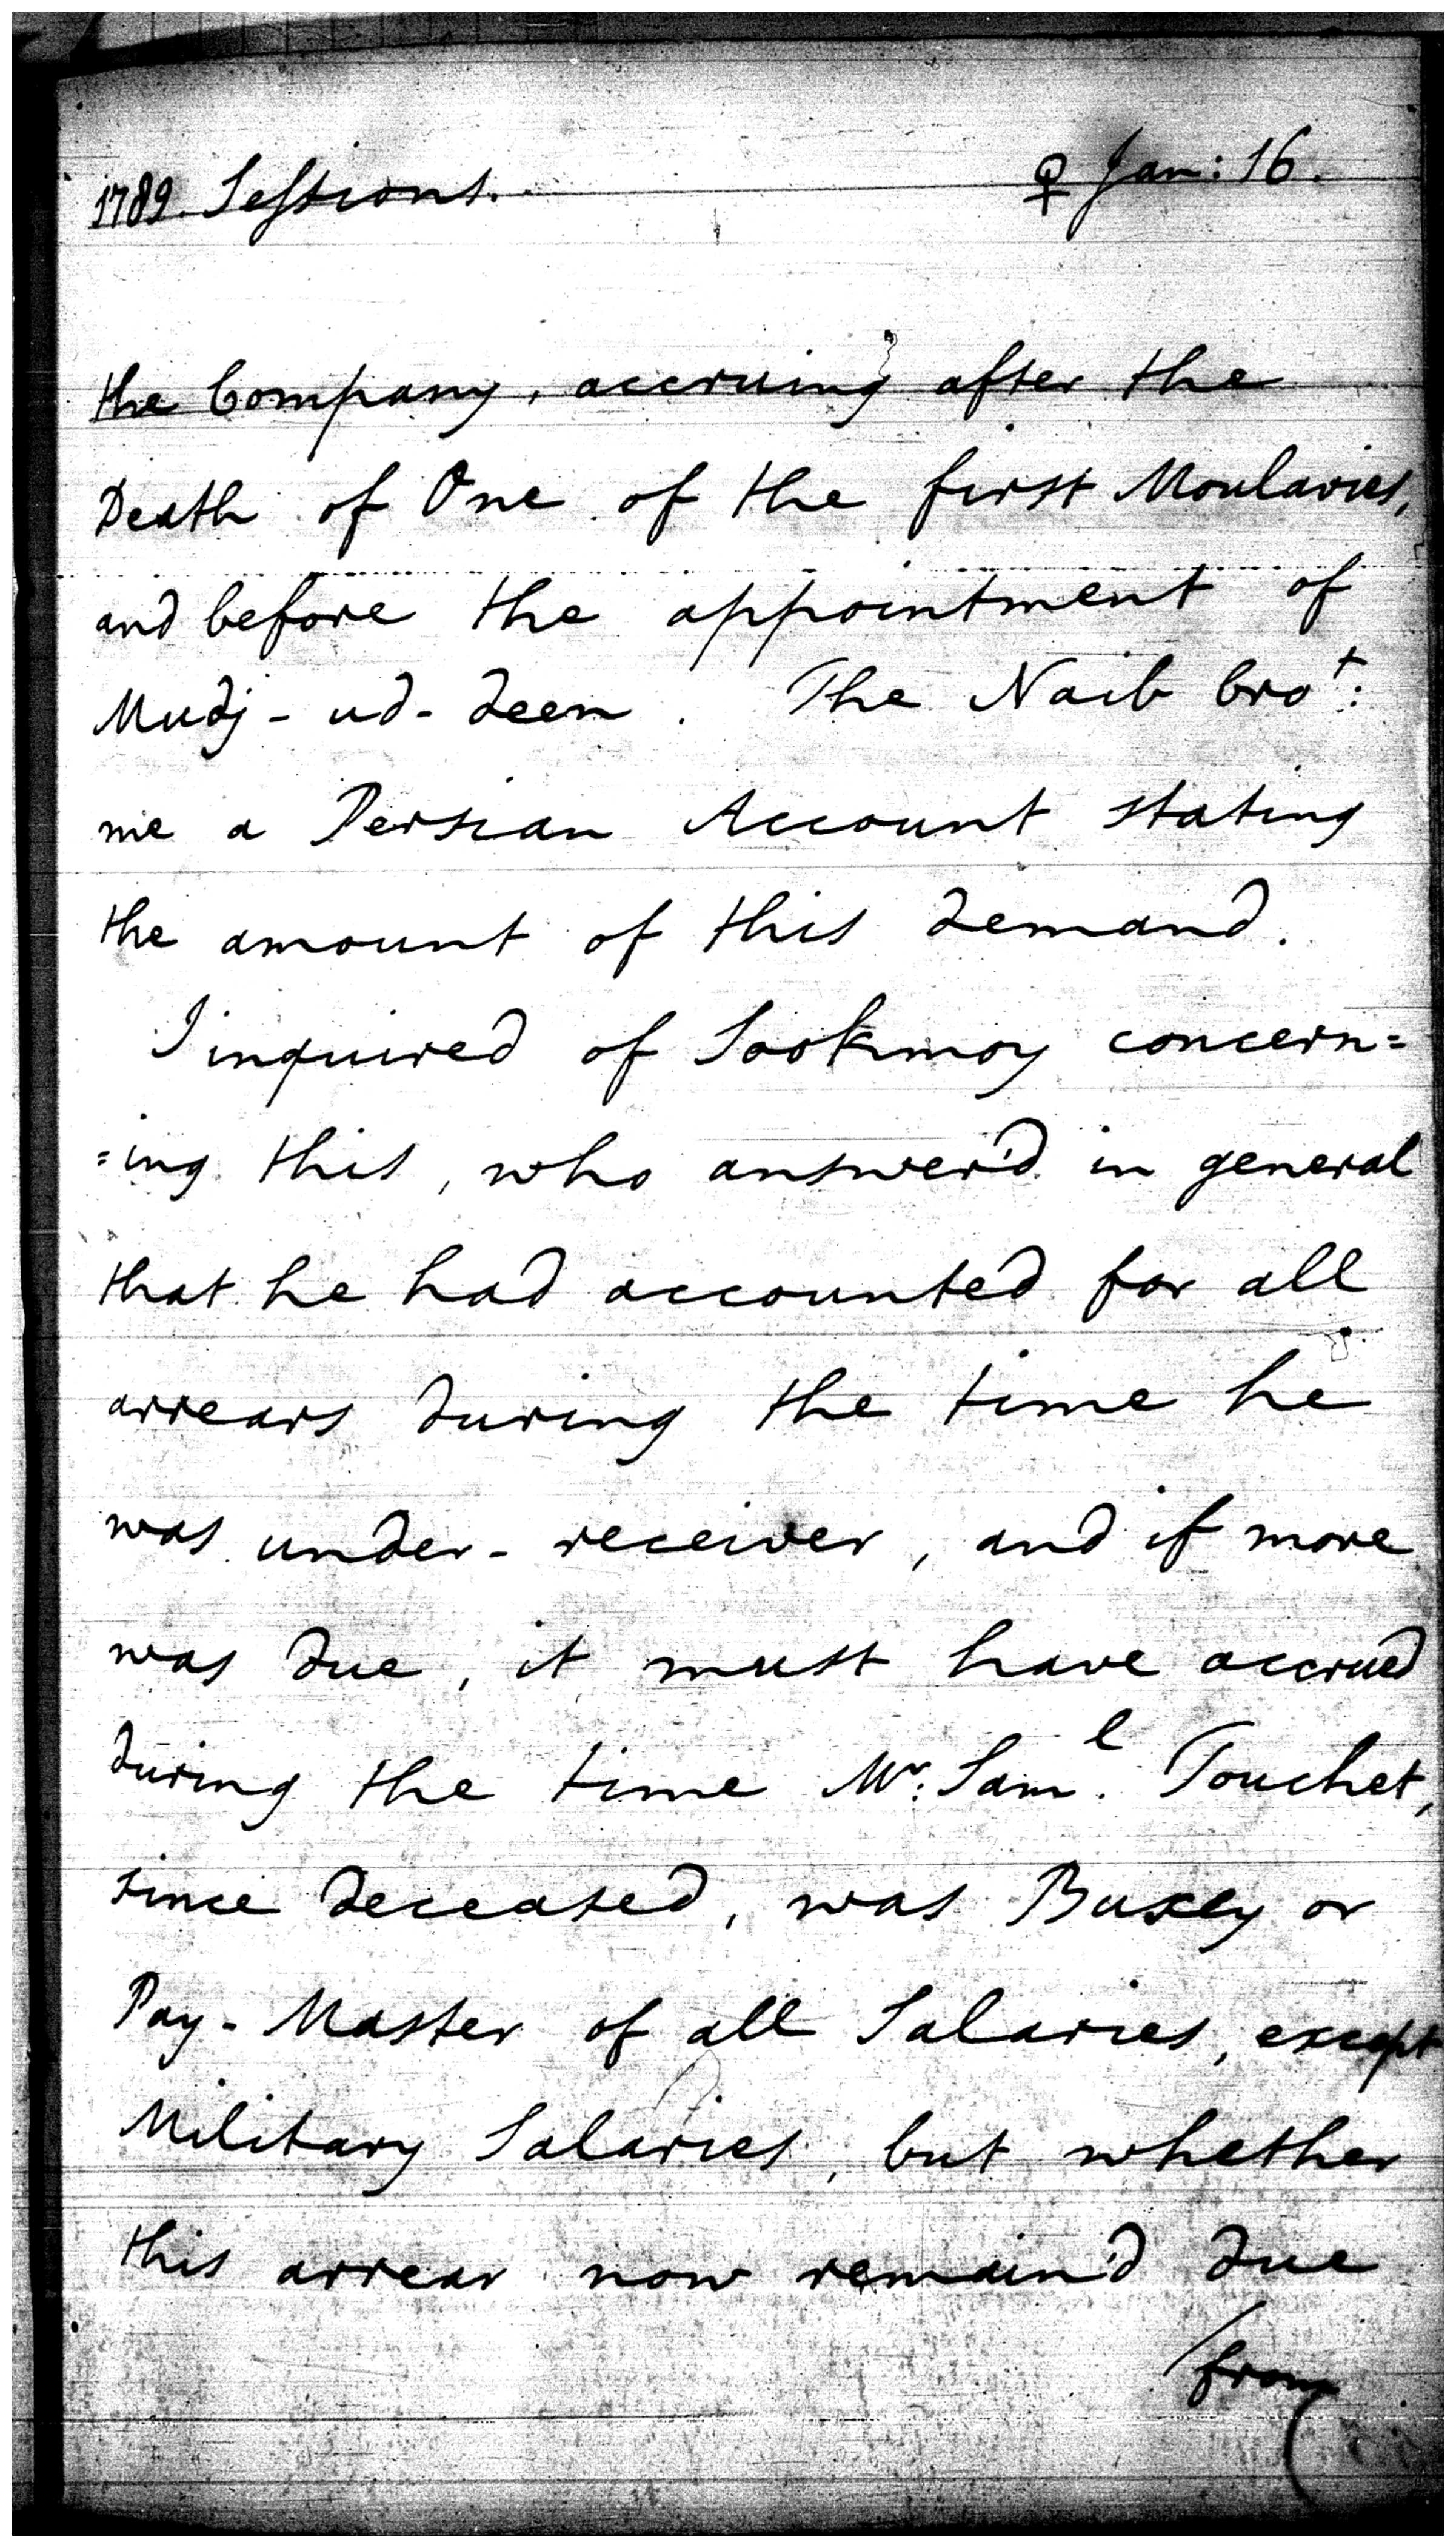 1789. Sessions. ♀ Jan: 16.
the Company, accruing after the
Death of One of the first Moulavies,
and before the appointment of
Mudj-ud-deen. The Naib bro^t:
me a Persian Account stating
the amount of this demand.
I inquired of Sookmoy concern=
=ing this, who answer'd in general
that he had accounted for all
arrears during the time he
was under-receiver, and if more
was due, it must have accrued
during the time Mr: Sam^l. Touchet,
since deceased, was Buxey or
Pay-Master of all Salaries, except
Military Salaries, but whether
this arrear now remain'd due
from